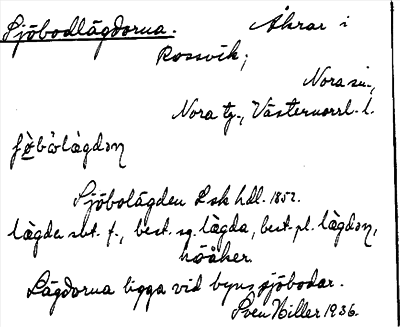 Sjöbodlägdorna. Åkrar i
Rossvik,
Nora sn.,
Nora tg., Västernorrl. l.
Sjöbolägden Lsk hdl. 1852.
lägde sbt. f., best. sg. lägda, best. pl. lägdəɳ,
höåker.
Lägdorna ligga vid byns sjöbodar.
Sven Hiller 1936.